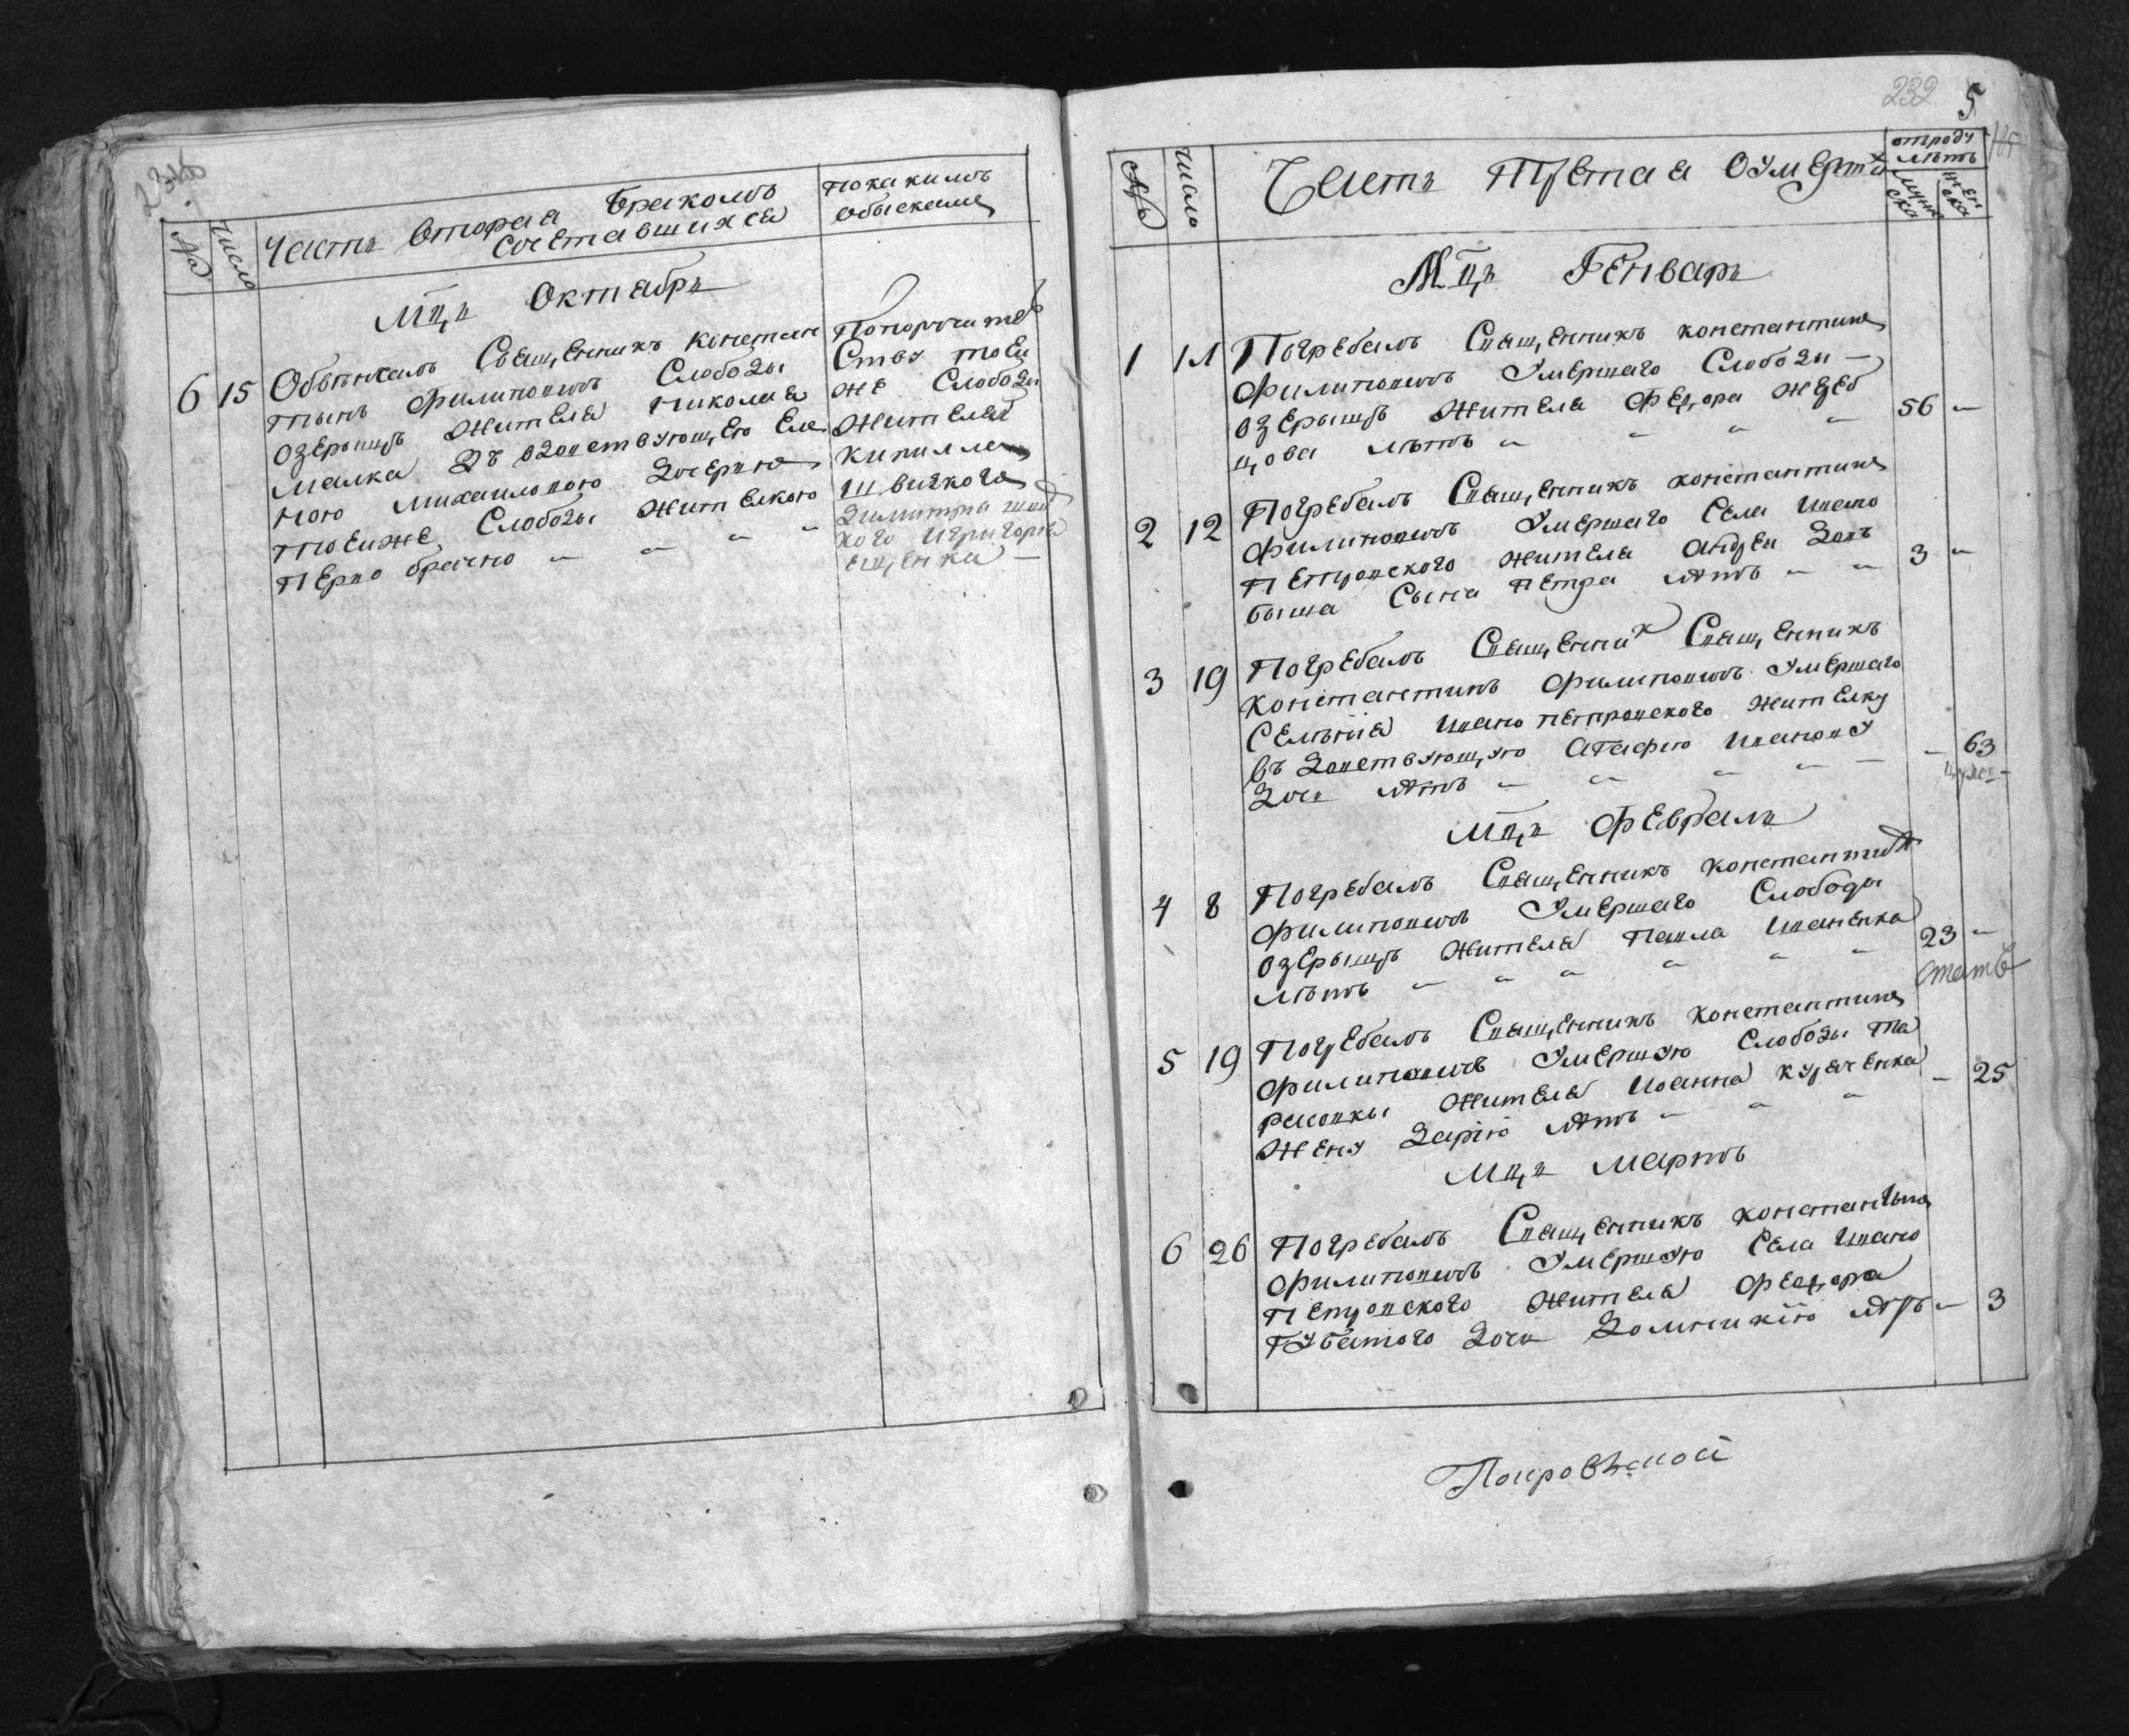 №
число
Часть вторая бракомъ
сочетавшихся
по какимъ
обыскамъ
Мцъ Октябрь
6 15
Обвенчалъ Священникъ констан
тинъ филиповичъ Слободы
озерыщъ жителя николая
малка въ вдовствующею еле
ною михаиловою дочерью
тоеиже Слободы жителкою
перво брачно
Попоручител
Ству тоеи
же Слободы
жителей
кирилла
швичкого
димитра
кого игригория
ещенка
232
5
№
число
Часть третая оумершихъ
отроду
летъ
мужи
ска
жен
ска
Мцъ Генварь
1 11
Погребалъ Священникъ константинъ
филиповичъ умершаго Слободы
озерыщъ жителя федора жереб
цова летъ 56
2 12
Погребалъ Священникъ константинъ
филиповичъ умершаго Села ивано
петровского жителя андрея довъ
быша Сына петра летъ 3
3 19
Погребалъ Священник Священникъ
константинъ филиповичъ умершаго
Селения ивано петровского жителку
въ довствующую агафию иванову
дочь летъ 63
Мцъ Февраль
4 8
Погребалъ Священникъ константинъ
филиповичъ умершаго Слободы
озерыщъ жителя павла иваненка
летъ 23
5 19
Погребалъ Священникъ константинъ
филиповичъ умершую Слободы та
расовки жителя иоанна курченка
жену дарию летъ 25
Мцъ Мартъ
6 26
Погребалъ Священникъ константинъ
филиповичъ умершую Села ивано
петровского жителя федора
губатого дочь домникию летъ 3